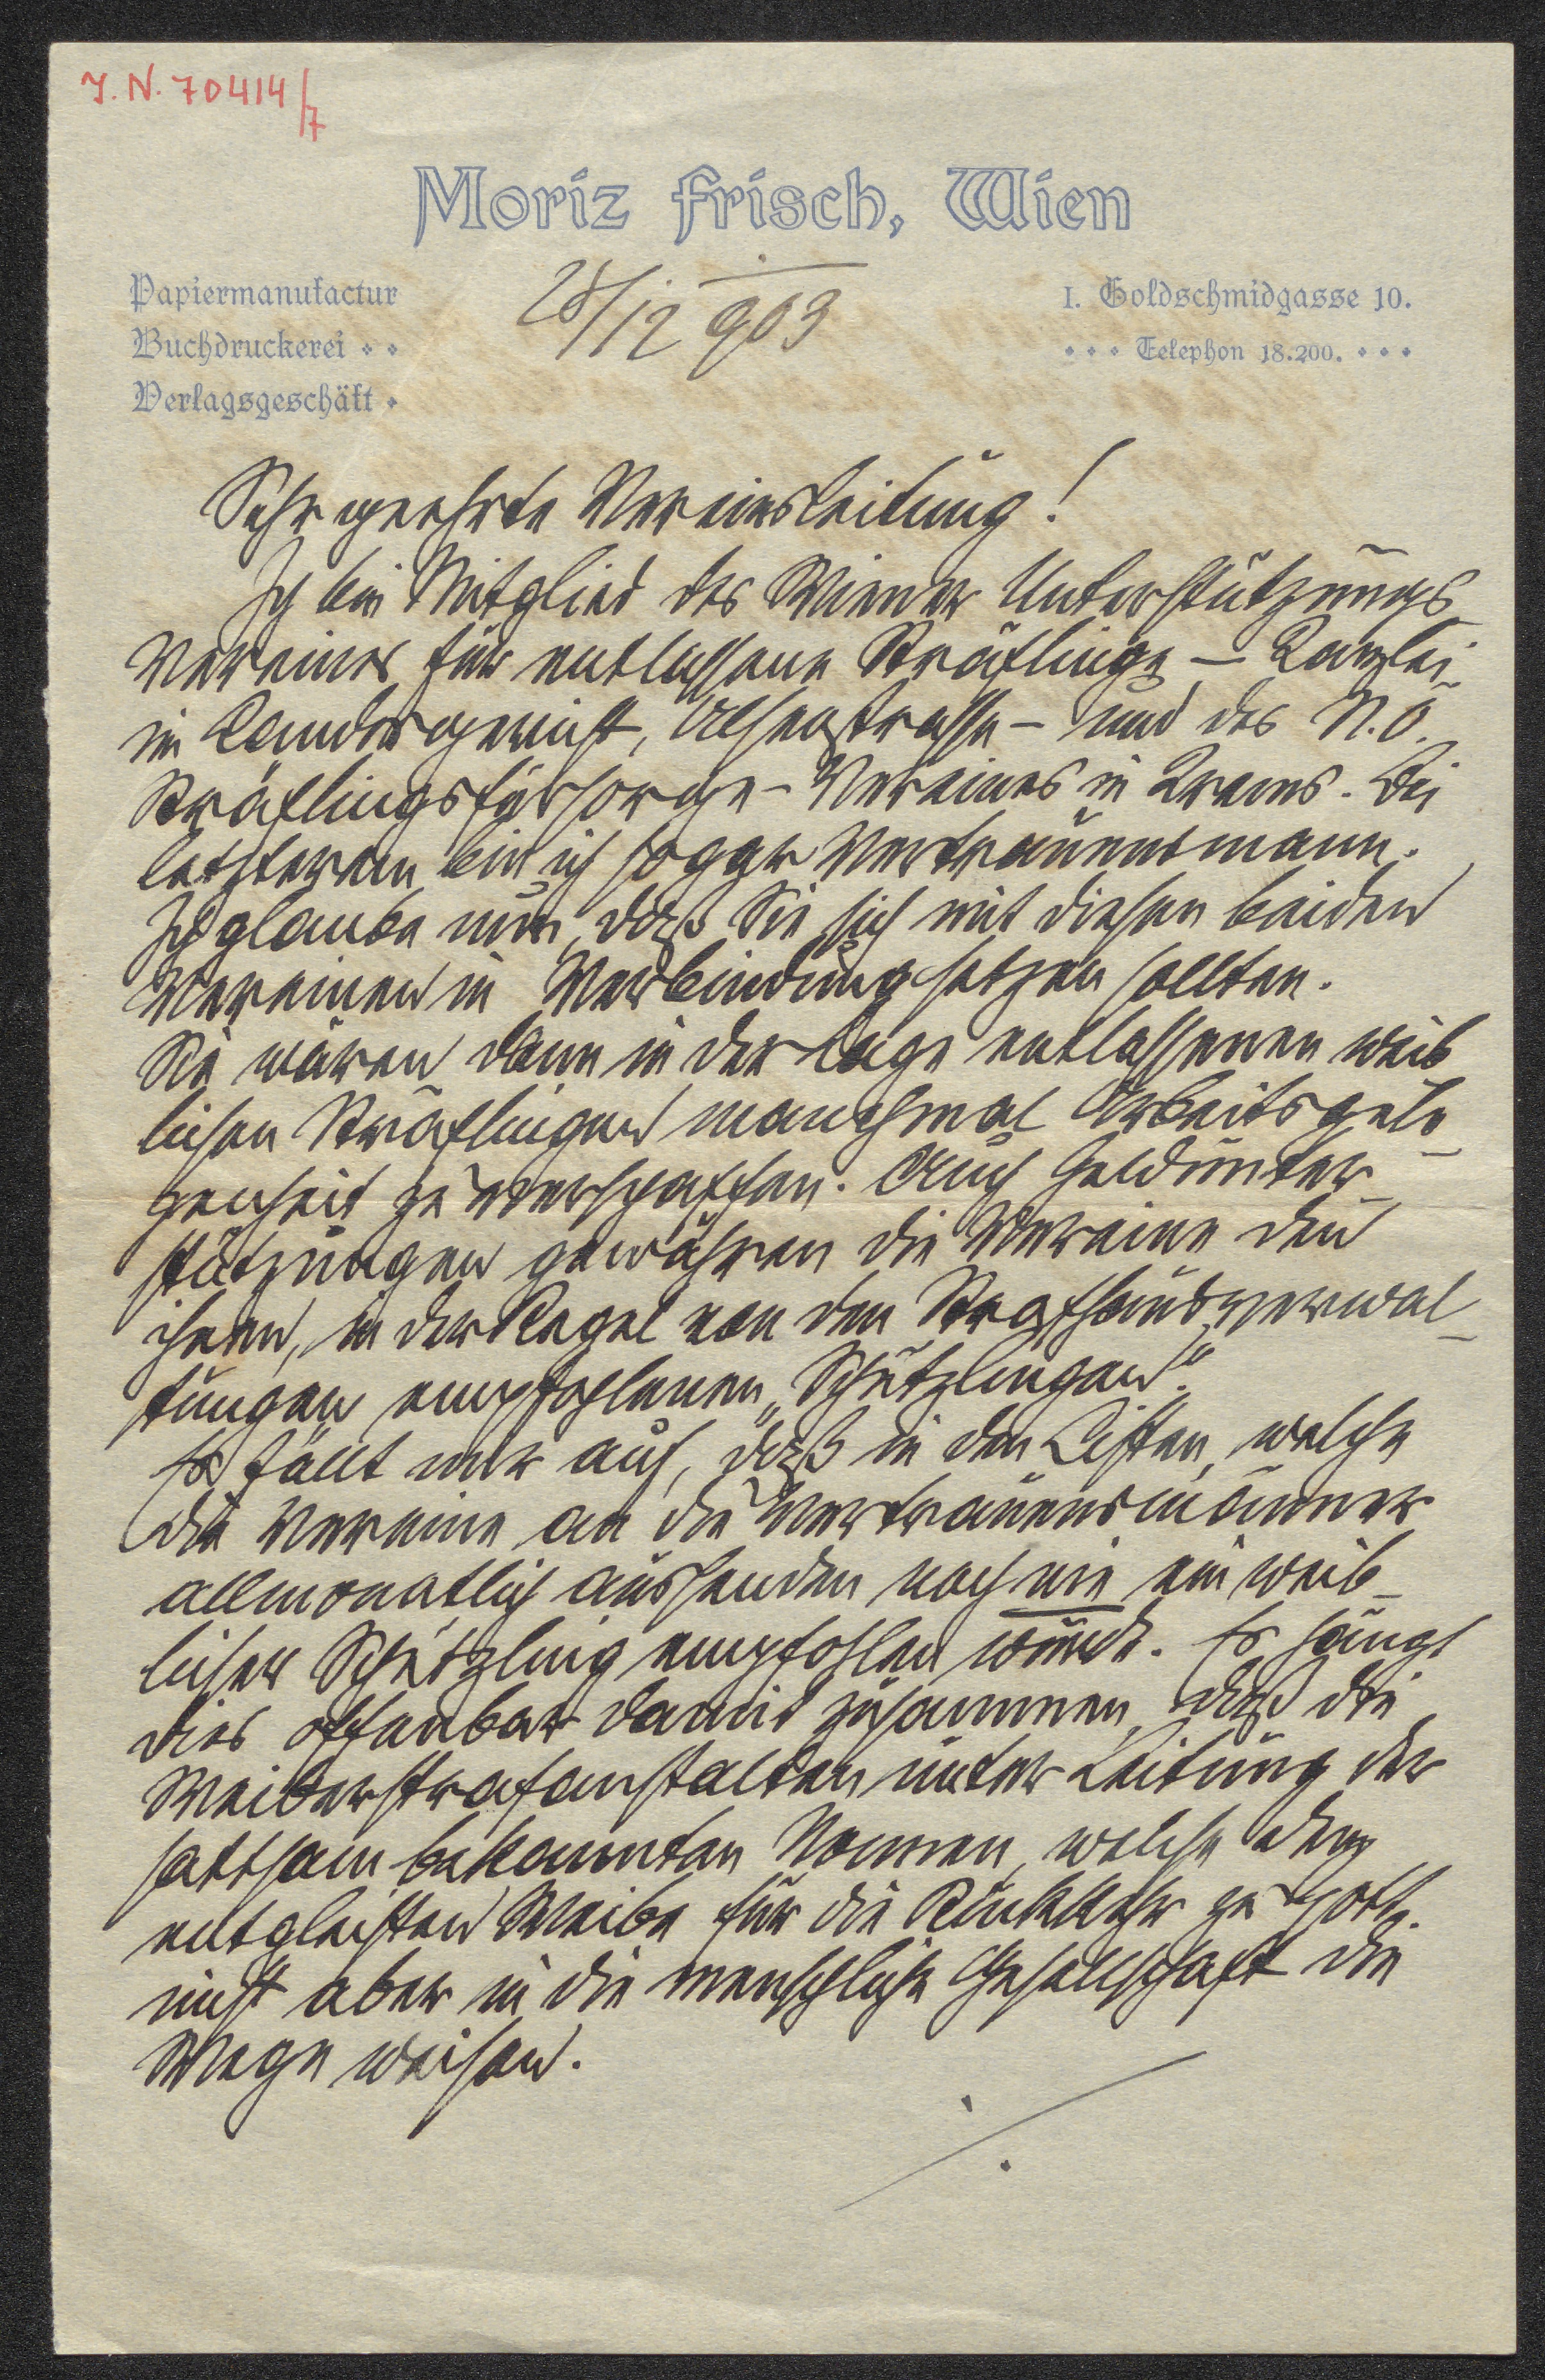 J. N. 70414/7
Moriz Frisch, Wien
Papiermanufactur
Buchdruckerei
Verlagsgeschäft
28/12 903
I. Goldschmidgasse 10.
Telephon 18.200.
Sehr geehrte Vereinsleitung!
Ich bin Mitglied des Wiener Unterstützungs
Vereines für entlassene Sträflinge – Kanzlei
im Landesgericht, Alserstrasse – und des N.Ö.
Sträflingsfürsorge-Vereines in Krems. Bei
letzterem bin ich sogar Vertrauensmann.
Ich glaube nun, daß Sie sich mit diesen beiden
Vereinen in Verbindung setzen sollten.
Sie wären dann in der Lage entlassenen weib
lichen Sträflingen manchmal Arbeitsgele-
genheit zu verschaffen. Auch Geldunter-
stützungen gewähren die Vereine den
ihnen, in der Regel von den Strafhausverwal-
tungen empfohlenen „Schützlingen“.
Es fällt mir auf, daß in den Listen, welche
die Vereine an die Vertrauensmänner
allmonatlich aussenden noch nie ein weib-
licher Schützling empfohlen wurde. Es hängt
dies offenbar damit zusammen, daß die
Weiberstrafanstalten unter Leitung der
sattsam bekannten Nonnen, welche dem
entgleisten Weibe für die Rückkehr zu Gott,
nicht aber in die menschliche Gesellschaft die
Wege weisen.
./.